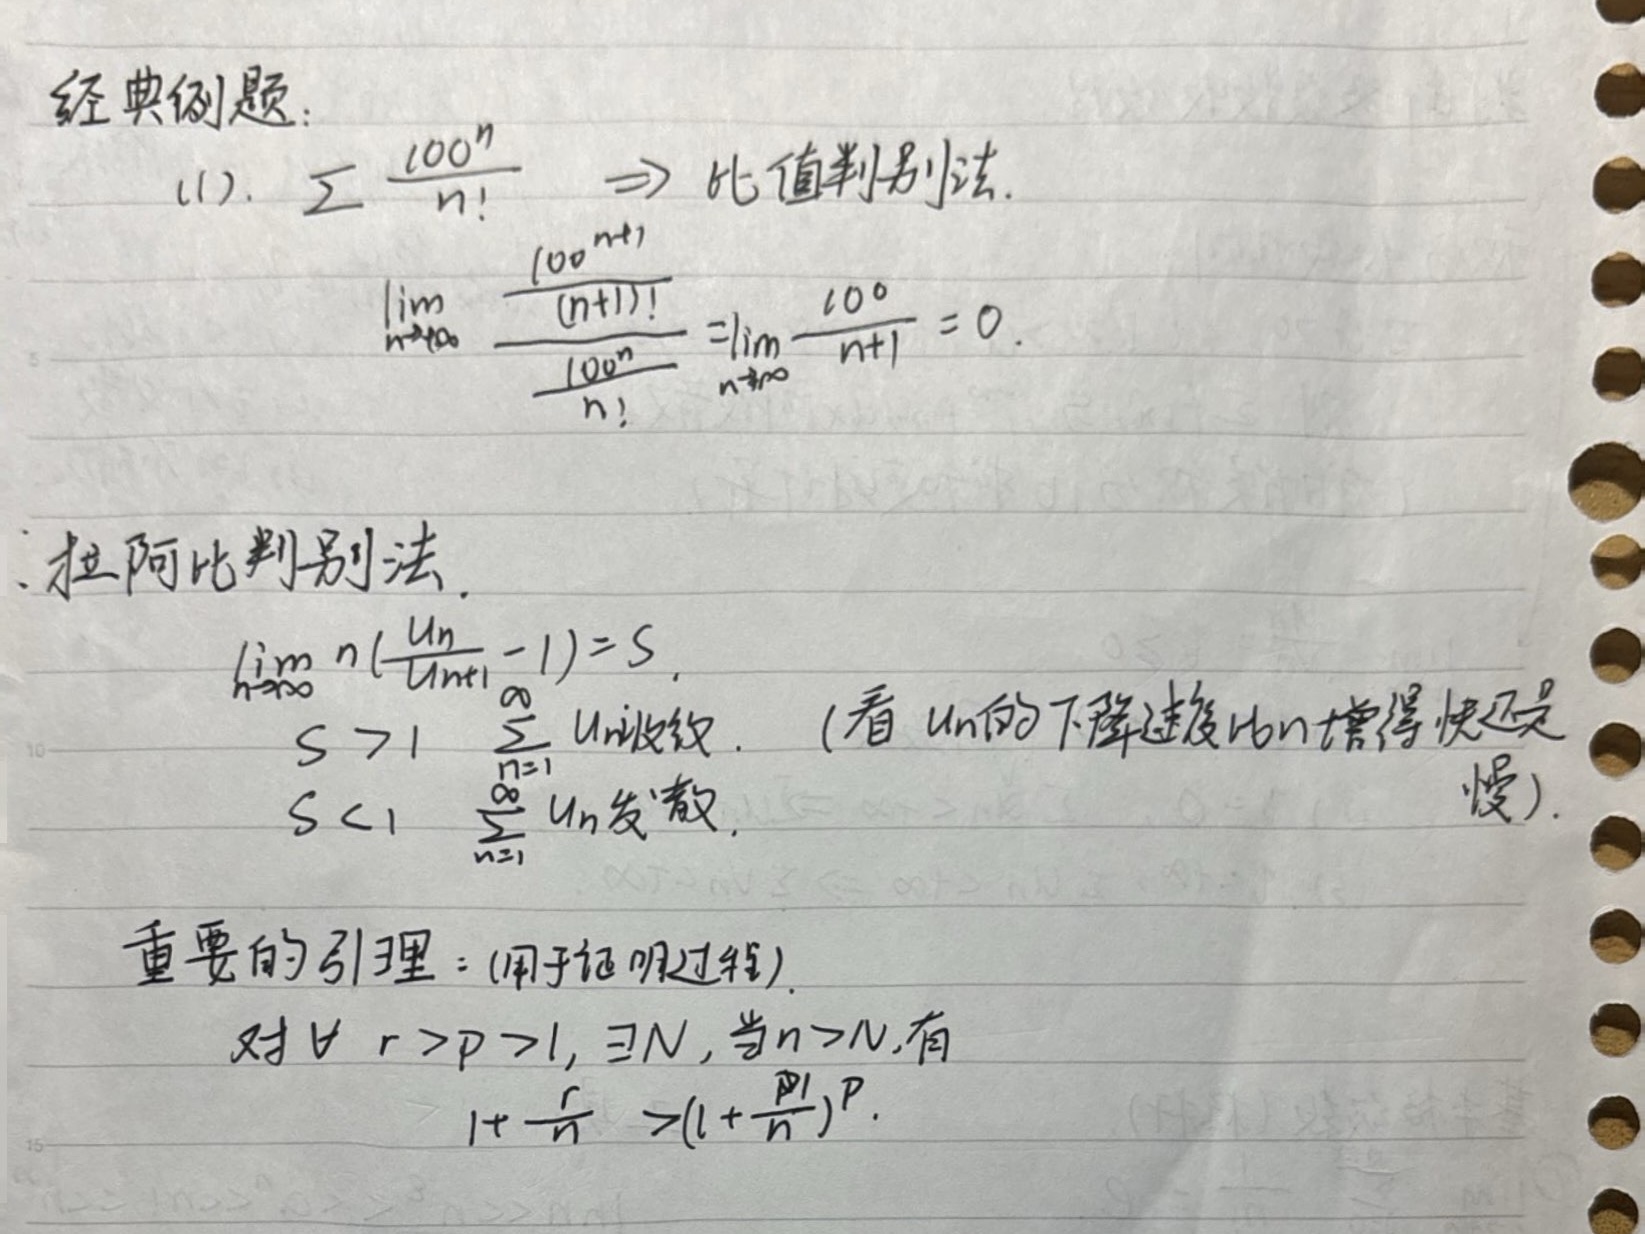 经典例题:
(1). ∑ 100^n / n! ⇒ 比值判别法.
lim_{n→+∞} (100^{n+1} / (n+1)!) / (100^n / n!) = lim_{n→+∞} 100 / (n+1) = 0.
拉阿比判别法.
lim_{n→+∞} n(Un / Un+1 - 1) = S.
S > 1 ∑_{n=1}^{∞} Un收纹. (看 Un的下降速度比n增得快还是
慢).
S < 1 ∑_{n=1}^{∞} Un发散.
重要的引理: (用于证明过程).
对∀ r > p > 1, ∃N, 当n > N, 有
1 + r/n > (1 + 1/n)^p.
5
10
15